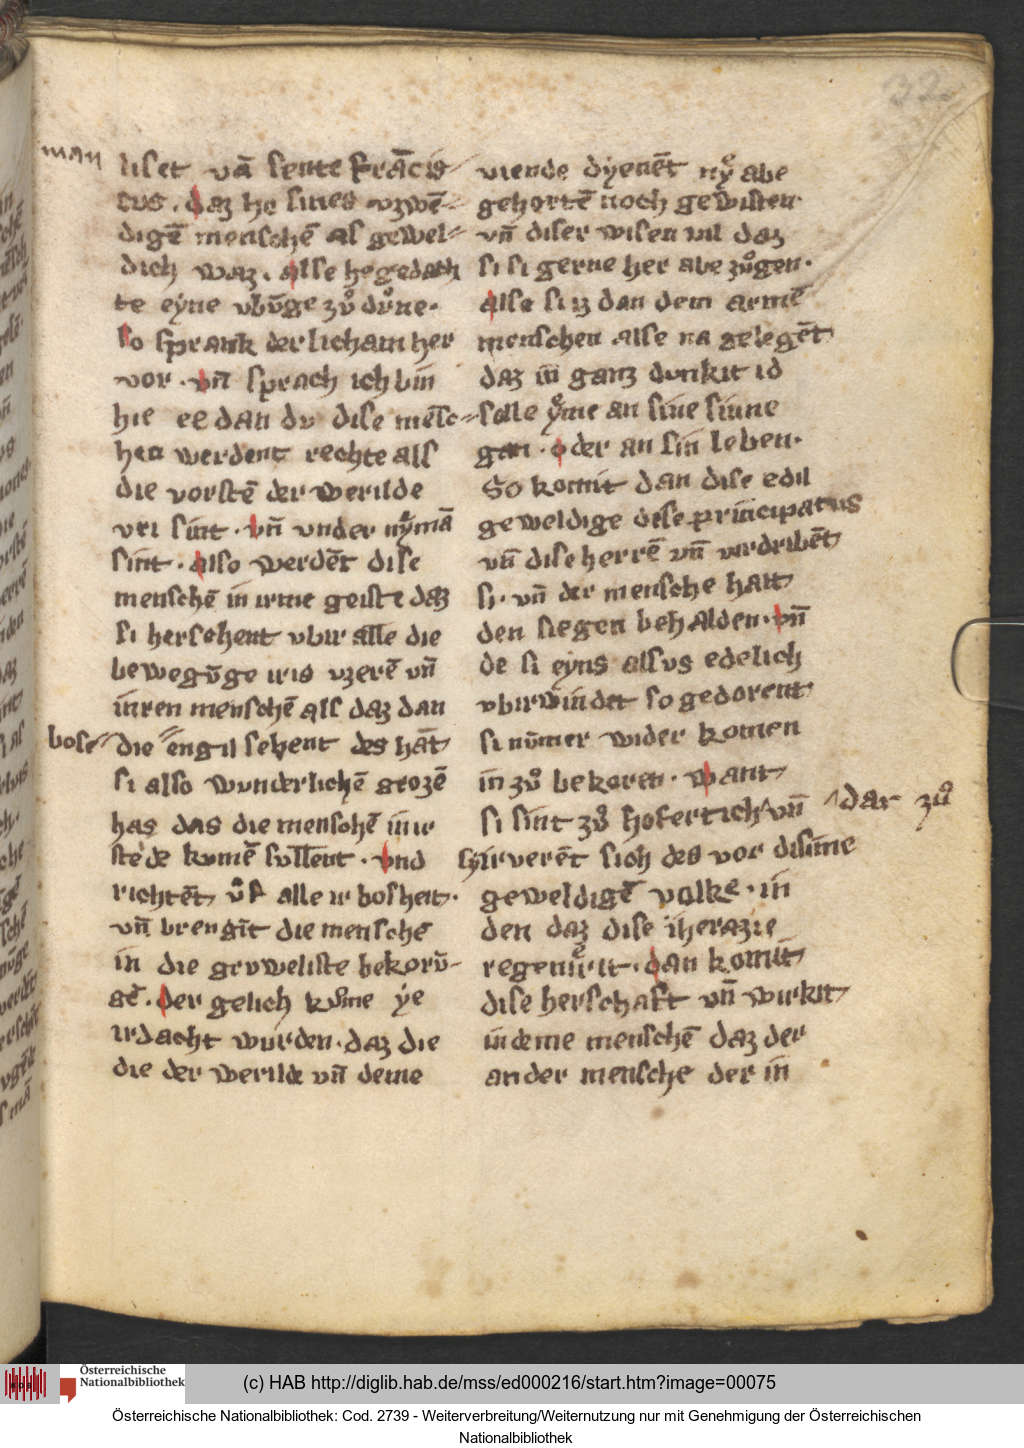 32
man liset vā sente Frācis
cus . daz he sines vzwē
digē menschē als gewel
dich waz . alse he gedach
te eyne vbūge zuͦ duͦne .
so sprank der licham her
vor . vn̄ sprach ich bin
hie ee dan du dise mēsc
hen werdent rechte alss
die vorstē der werilde
vri sint . vn̄ vnder nymā
sint . also werdēt dise
menschē in irme geiste daz
si hersehent vbir alle die
bewegūge iris vzerē vn̄
inren menschē als daz dan
bose die engil sehent des hāt
si also wunderlichē grozē
has das die menschē in ir
stede kumē sullent . vnd
richtēt uͦf alle ir bosheit .
vn̄ brengīt die menschē
in die gruweliste bekorū
gē . der gelich kume ye
irdacht wurden . daz die
die der werilde vn̄ deme
viende dyenēt ny abe
gehortē noch gewisten .
vn̄ diser wisen wil daz
si si gerne her abe zuͦgen .
alse si iz dan dem armē
menschen alse na gelegēt
daz in ganz dunkit id
solle yme an sine sinne
gan . oder an sin leben .
So komit dan dise edil
geweldige dese principatus
vn̄ dise herrē vn̄ virdribēt
si . vn̄ der mensche hait
den siegen behalden . vn̄
de si eyns alsus edelich
vbirwindit so gedorent
si nūmer wider komen
in zuͦ bekoren . want
si sint zuͦ hofertich vn̄ dar zuͦ
schirverēt sich des vor disime
geweldigē volke . in
den daz dise iherazie
regenirit . dan komit
dise herschaft vn̄ wirkit
in deme menschē daz der
ander mensche der in
Österreichische
Nationalbibliothek
(c) HAB http://diglib.hab.de/mss/ed000216/start.htm?image=00075
Österreichische Nationalbibliothek: Cod. 2739 - Weiterverbreitung/Weiternutzung nur mit Genehmigung der Österreichischen
Nationalbibliothek